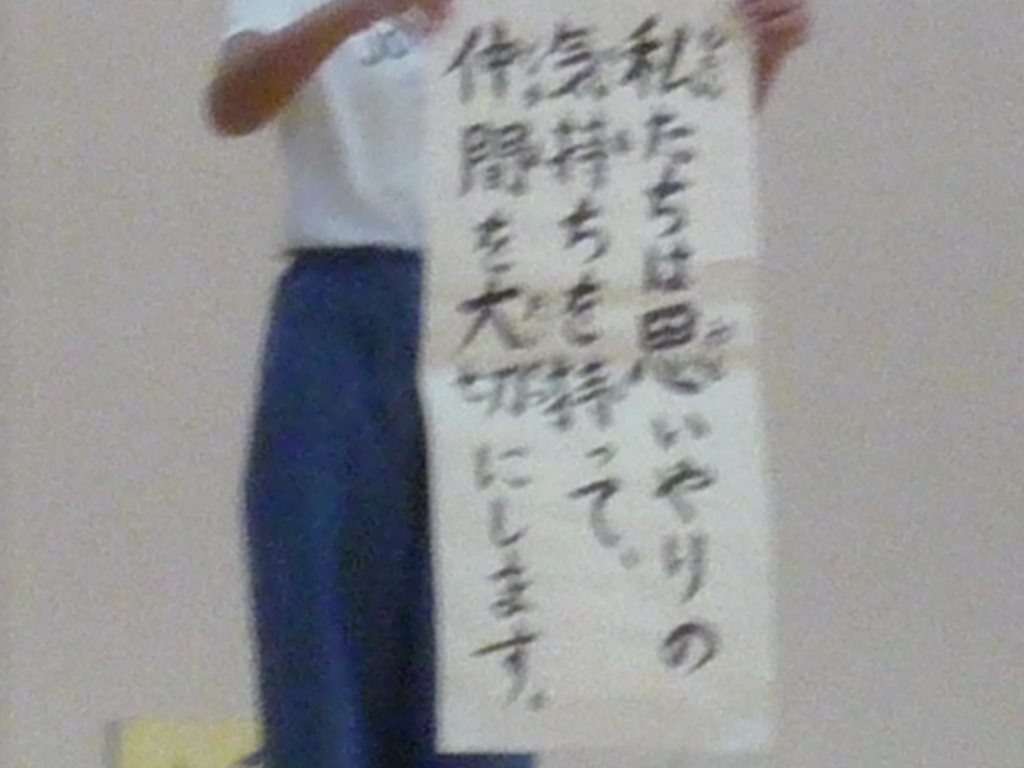 私たちは思いやりの
気持ちを持って、
仲間を大切にします。